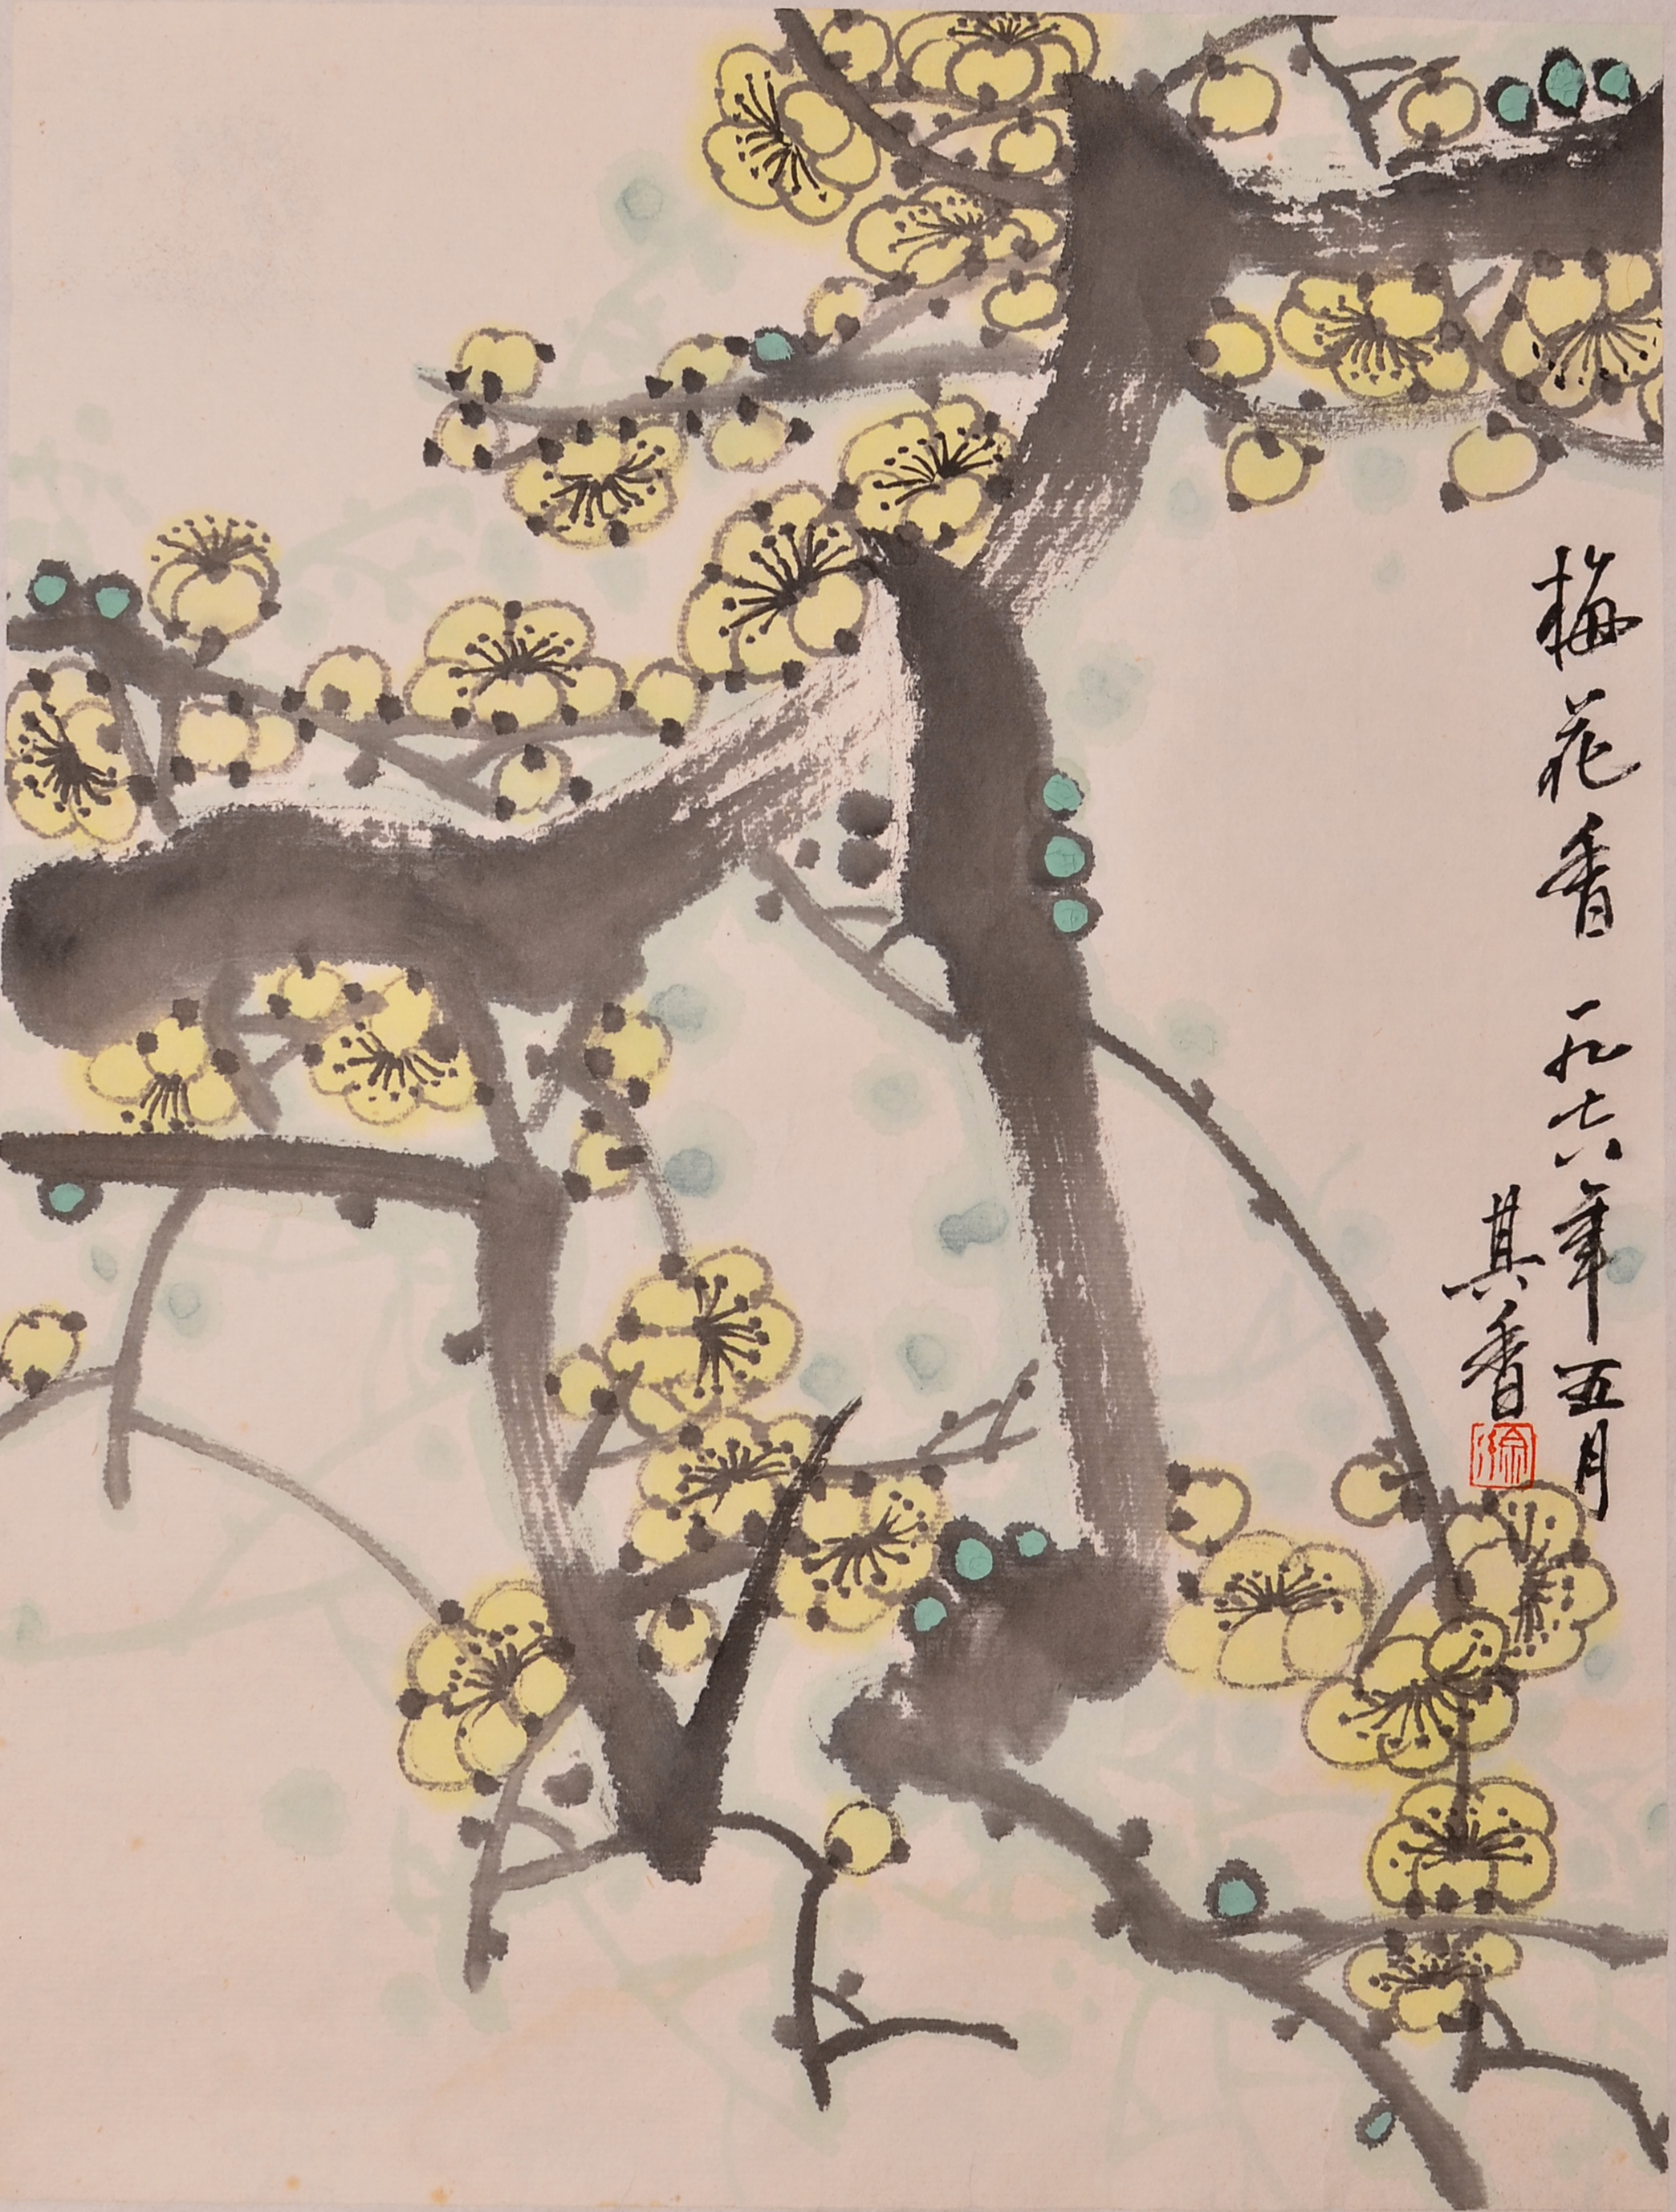 梅花香 一九七八年五月
其香